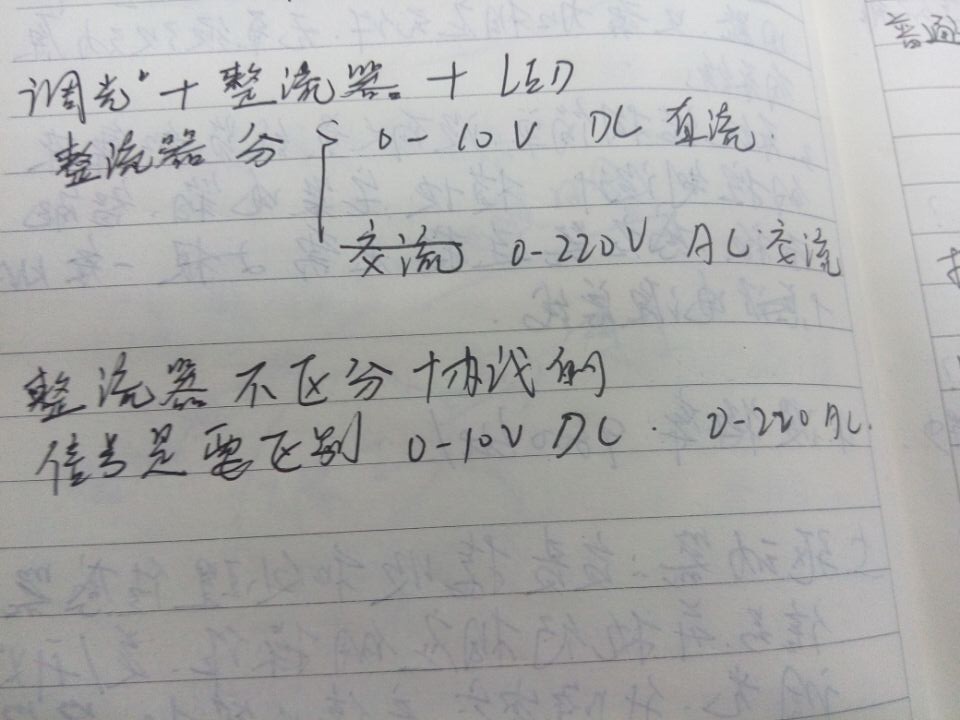 调光 + 整流器 + LED
整流器分 0-10V DC 直流
交流 0-220V AC 交流
整流器不区分协议的
信号是要区别 0-10V DC. 0-220 AC.
普通